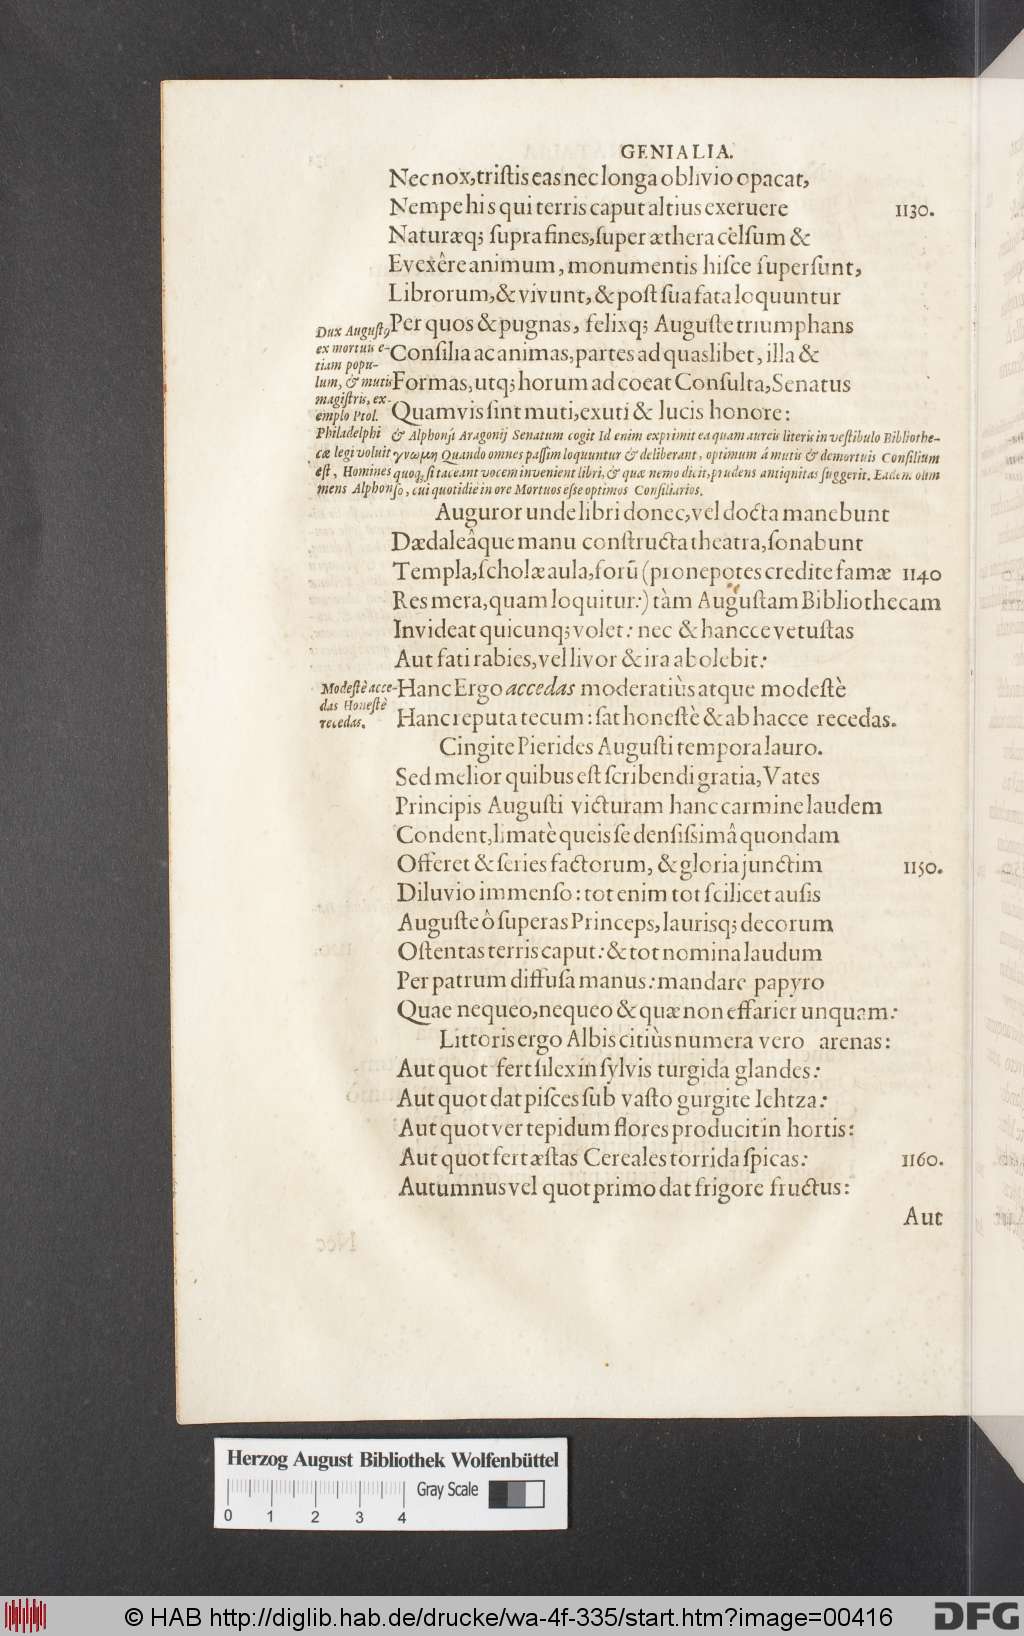 GENIALIA.
Nec nox, tristis eas nec longa oblivio opacat,
Nempe his qui terris caput altius exeruere 1130.
Naturæq; supra fines, super æthera celsum &
Evexêre animum, monumentis hisce supersunt,
Librorum, & vivunt, & post sua fata loquuntur
Per quos & pugnas, felixq; Auguste triumphans
Consilia ac animas, partes ad quaslibet, illa &
Formas, utq; horum ad coeat Consulta, Senatus
Quamvis sint muti, exuti & lucis honore:
Dux Augustꝰ
ex mortuis e-
tiam popu-
lum, & mutis
magistris, ex-
emplo Ptol.
Philadelphi & Alphonsi Aragonij Senatum cogit Id enim exprimit ea quam aureis literis in vestibulo Bibliothe-
cæ legi voluit γνωμη Quando omnes passim loquuntur & deliberant, optimum á mutis & demortuis Consilium
est, Homines quoq, si taceant vocem invenient libri, & quæ nemo dicit, prudens antiquitas suggerit. Eadem olim
mens Alphonso, cui quotidie in ore Mortuos esse optimos Consiliarios.
Auguror unde libri donec, vel docta manebunt
Dædaleâque manu constructa theatra, sonabunt
Templa, scholæ aula, forū (pronepotes credite famæ 1140
Res mera, quam loquitur:) tàm Augustam Bibliothecam
Invideat quicunq; volet: nec & hancce vetustas
Aut fati rabies, vel livor & ira abolebit:
Hanc Ergo accedas moderatiùs atque modestè
Hanc reputa tecum: sat honestè & ab hacce recedas.
Modestè acce-
das Honestè
recedas.
Cingite Pierides Augusti tempora lauro.
Sed melior quibus est scribendi gratia, Vates
Principis Augusti victuram hanc carmine laudem
Condent, limatè queis se densissimâ quondam
Offeret & series factorum, & gloria junctim 1150.
Diluvio immenso: tot enim tot scilicet ausis
Auguste ô superas Princeps, laurisq; decorum
Ostentas terris caput: & tot nomina laudum
Per patrum diffusa manus: mandare papyro
Quae nequeo, nequeo & quæ non effarier unquam:
Littoris ergo Albis citiùs numera vero arenas:
Aut quot fert silex in sylvis turgida glandes:
Aut quot dat pisces sub vasto gurgite Iehtza:
Aut quot ver tepidum flores producit in hortis:
Aut quot fert æstas Cereales torrida spicas: 1160.
Autumnus vel quot primo dat frigore fructus:
Aut
Herzog August Bibliothek Wolfenbüttel
Gray Scale
0 1 2 3 4
© HAB http://diglib.hab.de/drucke/wa-4f-335/start.htm?image=00416
DFG